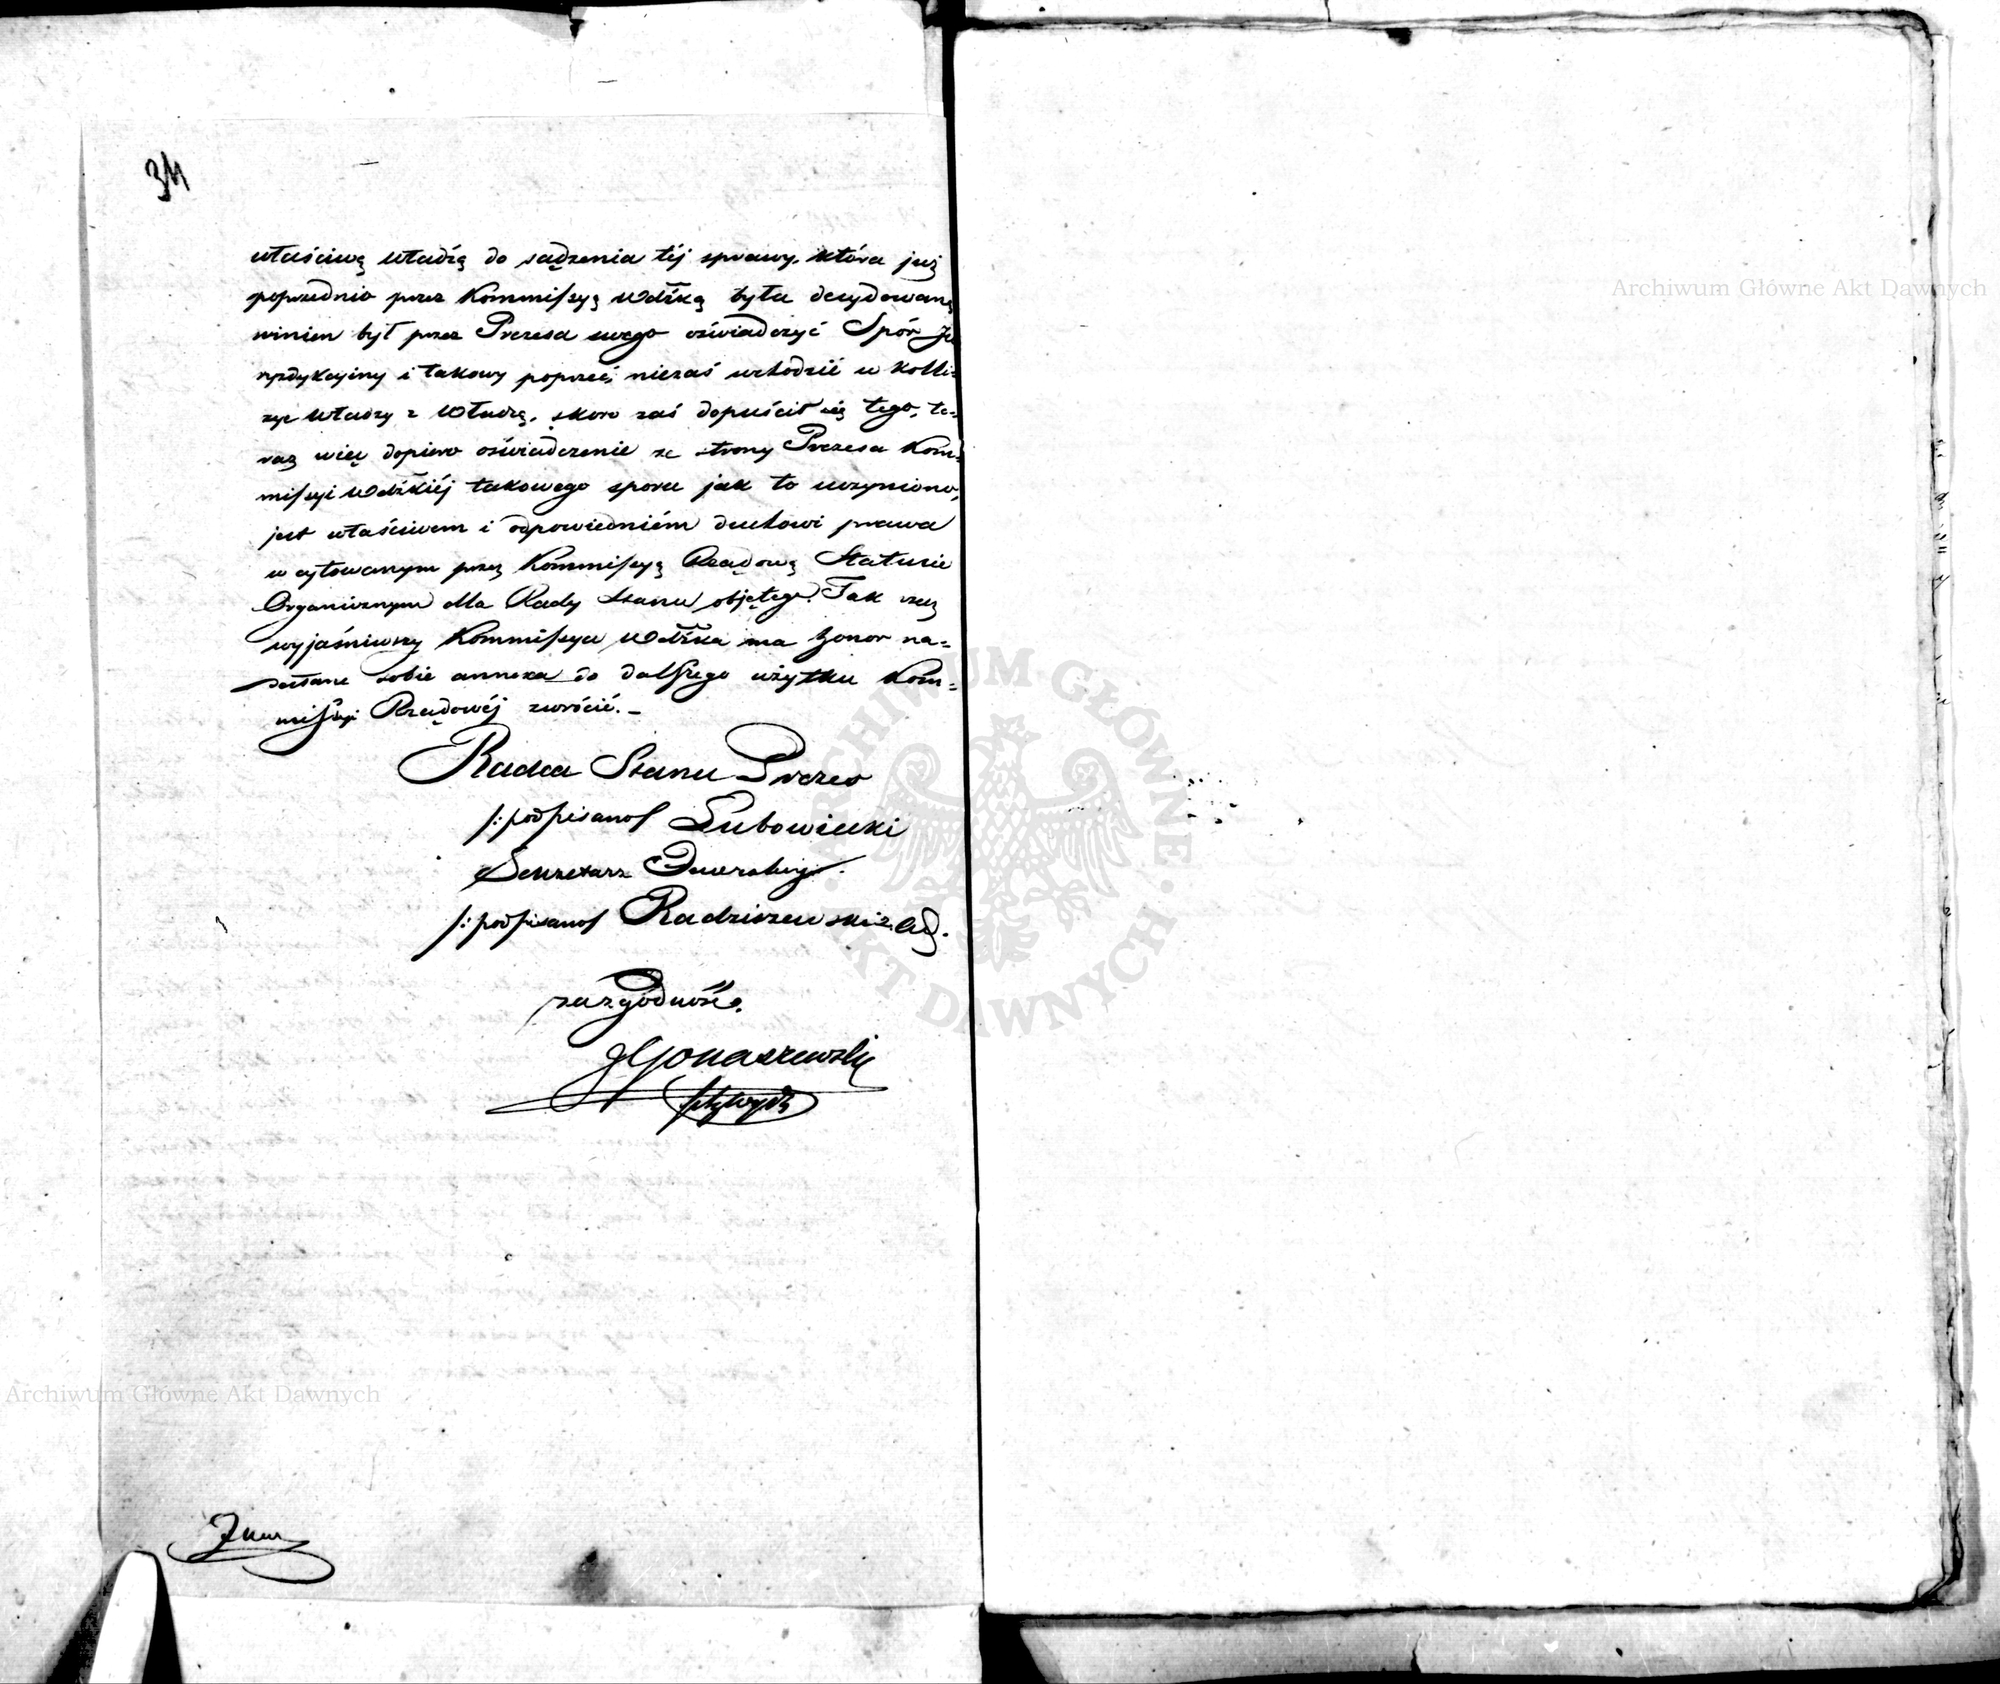 właściwą władzą do sądzenia téj sprawy, która już
poprzednio przez Kommissyą Wdzką była decydowaną
winien był przez Prezesa swego oświadczyć Spór Ju
rysdykcyiny i takowy poprzeć, niezaś wchodzić w Kolli=
zye władzy z władzą, skoro zaś dopuścił się tego, te=
raz więc dopiero oświadczenie ze strony Prezesa Kom=
missyi Wdzkiéj takowego sporu jak to uczyniono,
jest właściwem i odpowiedniém duchowi prawa
w cytowanym przez Kommissyą Rządową Statucie
Organicznym dla Rady Stanu objętego. Tak rzecz
wyjaśniwszy Kommissya Wdzka ma honor na=
desłane sobie annexa do dalszego użytku Kom=
missyi Rządowéj zwrócić._
Radca Stanu Prezes
/: podpisano/ Lubowicki
Sekretarz Jeneralny.
/: podpisano/ Radziszewski z. Ad.
za zgodność.
Gonaszewski
Archiwum Główne Akt Dawnych
Archiwum Główne Akt Dawnych
ARCHIWUM GŁÓWNE · AKT DAWNYCH ·